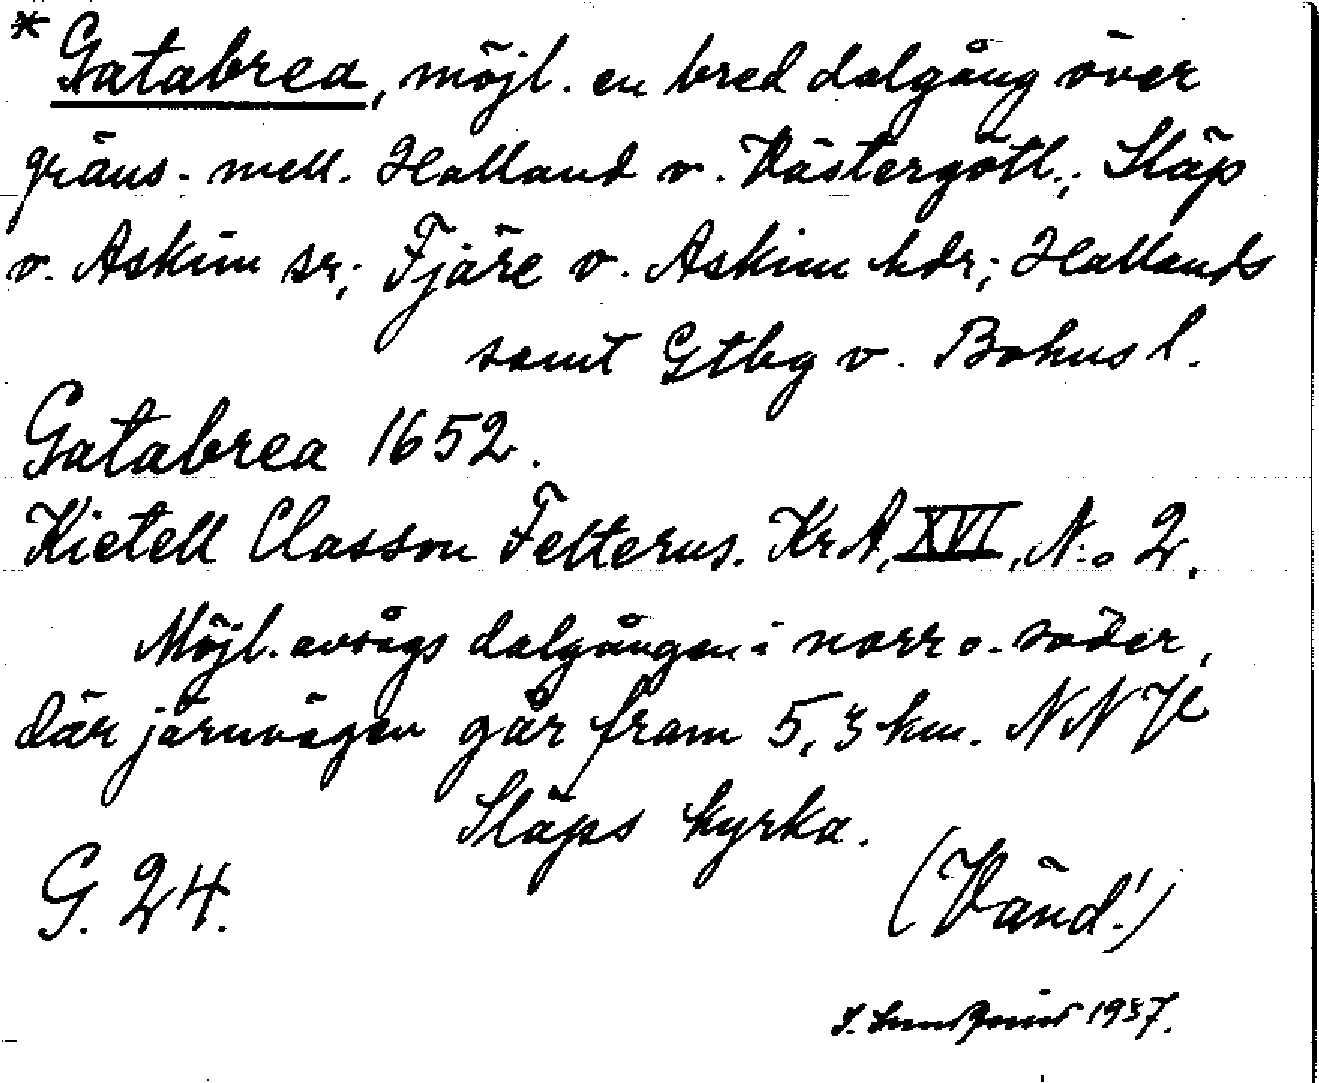 * Gatabrea, möjl. en bred dalgång över
gräns. mell. Halland o. Västergötl.; Släp
o. Askim sr; Fjäre o. Askim hdr; Hallands
samt Gtbg o. Bohus l.
Gatabrea 1652.
Kietell Classon Felterus. Kr A, XVI, N:o 2.
Möjl. avsågs dalgången i norr o. söder,
där järnvägen går fram 5,3 km. NNV
Släps kyrka.
G. 24.
(Vänd!)
1937.